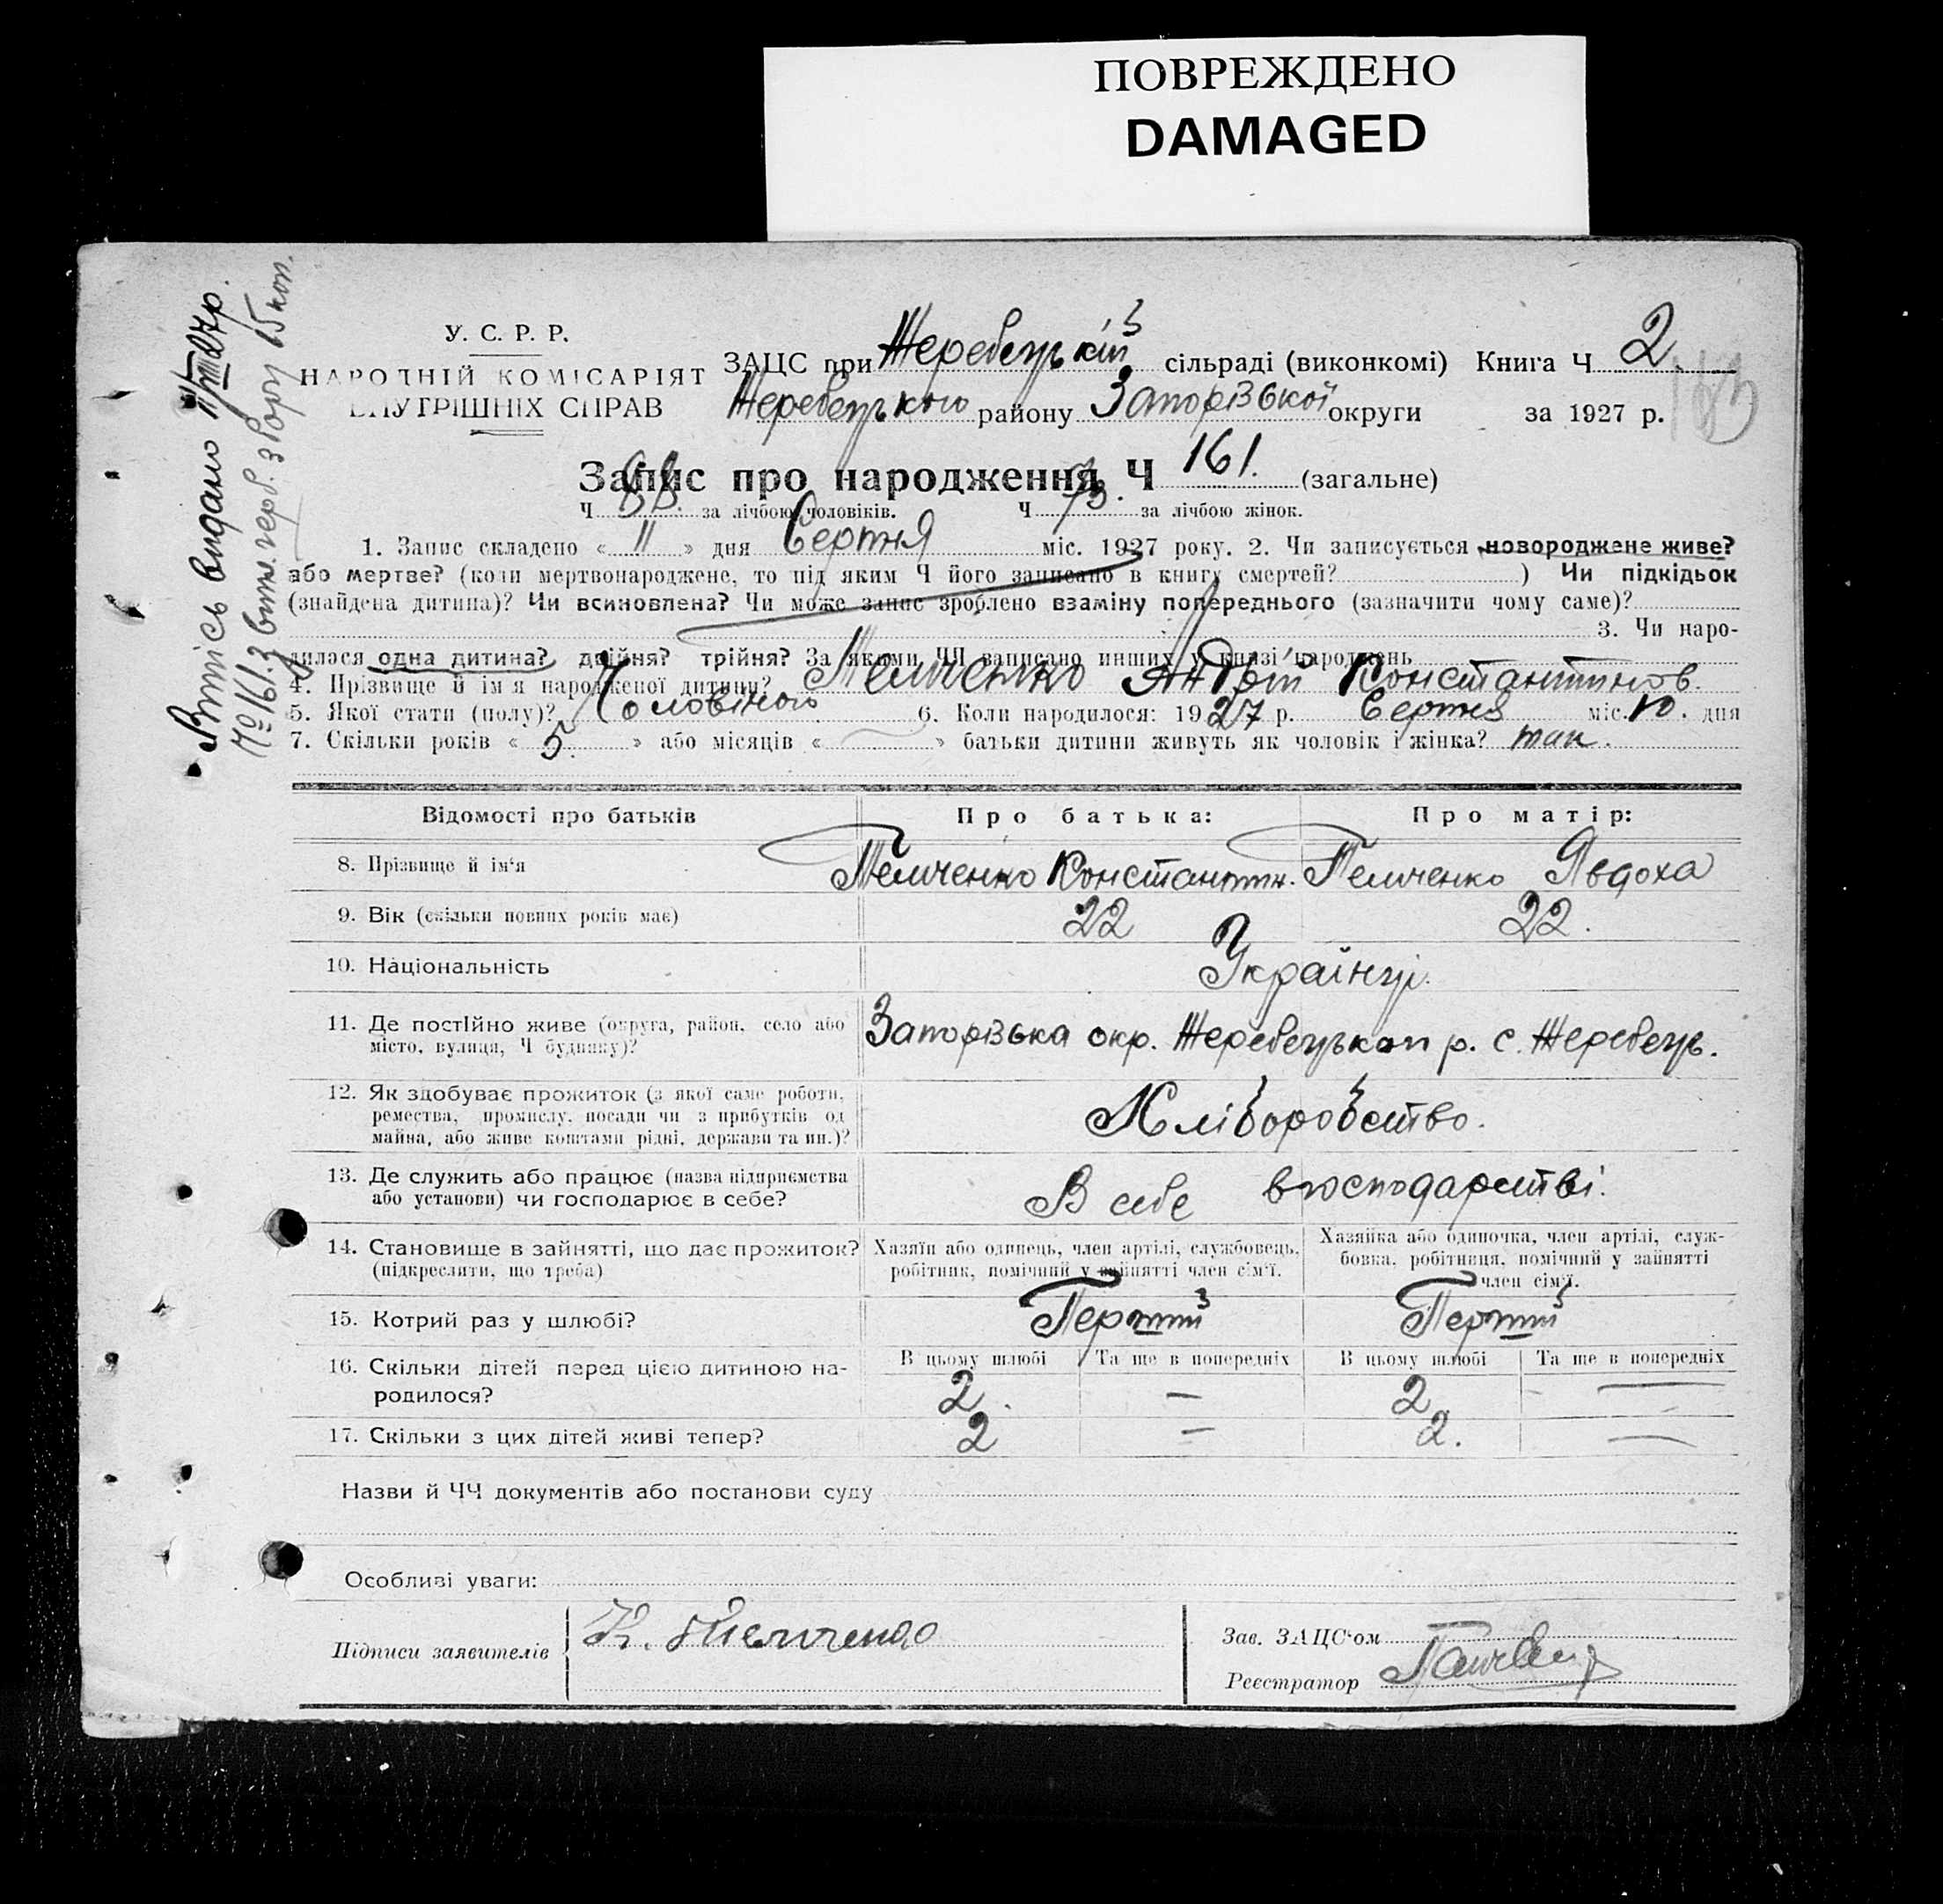 ПОВРЕЖДЕНО
DAMAGED
У. С. Р. Р.
НАРОДНІЙ КОМІСАРІЯТ
ВНУТРІШНІХ СПРАВ
ЗАЦС при Жеребецькій сільраді (виконкомі) Книга Ч 2.
Жеребецького району Запорізької округи за 1927 р.
Запис про народження Ч 161. (загальне)
Ч 88. за лічбою чоловіків. Ч 73. за лічбою жінок.
1. Запис складено « 11 » дня Серпня міс. 1927 року. 2. Чи записується новороджене живе?
або мертве? (коли мертвонароджене, то під яким Ч його записано в книгу смертей? ) Чи підкідьок
(знайдена дитина)? Чи всиновлена? Чи може запис зроблено взаміну попереднього (зазначити чому саме)?
3. Чи наро-
дилася одна дитина? двійня? трійня? За якими ЧЧ записано инших у книзі народжень
4. Прізвище й ім'я народженої дитини? Темченко Андрій Константинов.
5. Якої стати (полу)? Чоловічого 6. Коли народилося: 1927 р. Серпня міс. 10. дня
7. Скільки років « 5. » або місяців « » батьки дитини живуть як чоловік і жінка? так.
Відомості про батьків Про батька: Про матір:
8. Прізвище й ім'я Темченко Константин. Темченко Явдоха
9. Вік (скільки повних років має) 22 22.
10. Національність Українці.
11. Де постійно живе (округа, район, село або
місто, вулиця, Ч будинку)? Запорізька окр. Жеребецькоп р. с. Жеребець.
12. Як здобуває прожиток (з якої саме роботи,
ремества, промислу, посади чи з прибутків од
майна, або живе коштами рідні, держави та ин.)? Хліборобство.
13. Де служить або працює (назва підприємства
або установи) чи господарює в себе? В себе в господарстві.
14. Становище в зайнятті, що дає прожиток?
(підкреслити, що треба)
Хазяїн або одинець, член артілі, службовець,
робітник, помічний у зайнятті член сім'ї.
Хазяйка або одиночка, член артілі, служ-
бовка, робітниця, помічний у зайнятті
член сім'ї.
15. Котрий раз у шлюбі? Перший Перший
16. Скільки дітей перед цією дитиною на-
родилося?
В цьому шлюбі Та ще в попередніх В цьому шлюбі Та ще в попередніх
2. — 2. —
17. Скільки з цих дітей живі тепер? 2 — 2. —
Назви й ЧЧ документів або постанови суду
Особливі уваги:
Підписи заявителів К. Темченко
Зав. ЗАЦС'ом
Реєстратор
Випись видано 11/VIII 27 р.
№ 161. з герб. збору 15 коп.